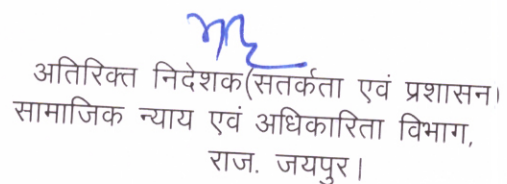 अतिरिक्त निदेशक(सतर्कता एवं प्रशासन।
सामाजिक न्याय एवं अधिकारिता विभाग,
राज. जयपुर।